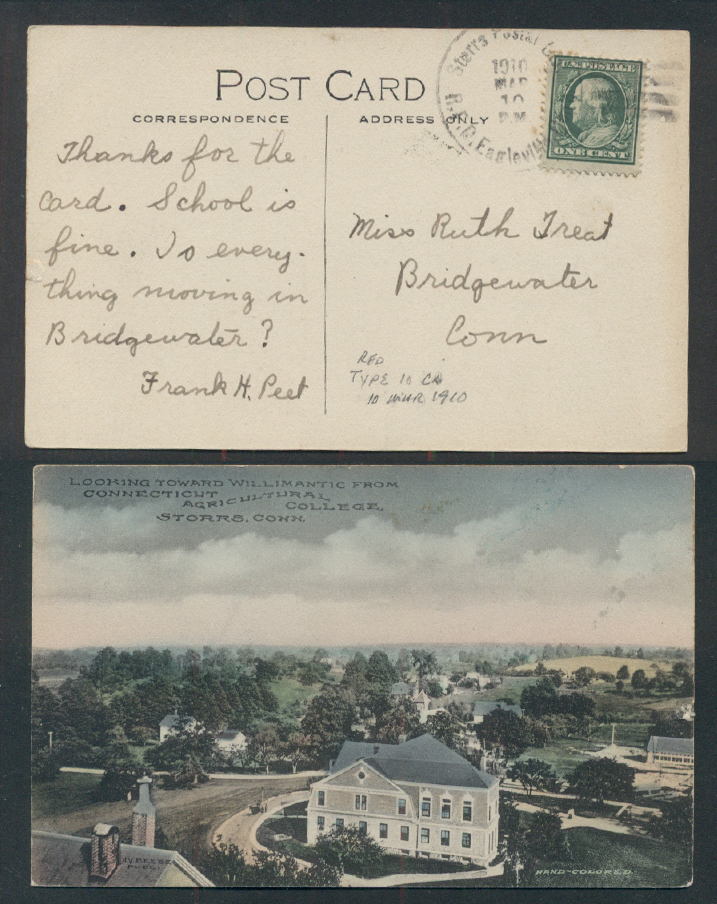 POST CARD
CORRESPONDENCE
ADDRESS ONLY
Storrs Postal
1910
MAR
10
P.M
R.F.D. Eagleville
U.S. POSTAGE
ONE CENT
Thanks for the
card. School is
fine. Is every-
thing moving in
Bridgewater?
Frank H. Peet
Miss Ruth Treat
Bridgewater
Conn
RFD
TYPE 10
10 MAR 1910
LOOKING TOWARD WILLIMANTIC FROM
CONNECTICUT AGRICULTURAL COLLEGE,
STORRS, CONN.
HAND-COLORED.